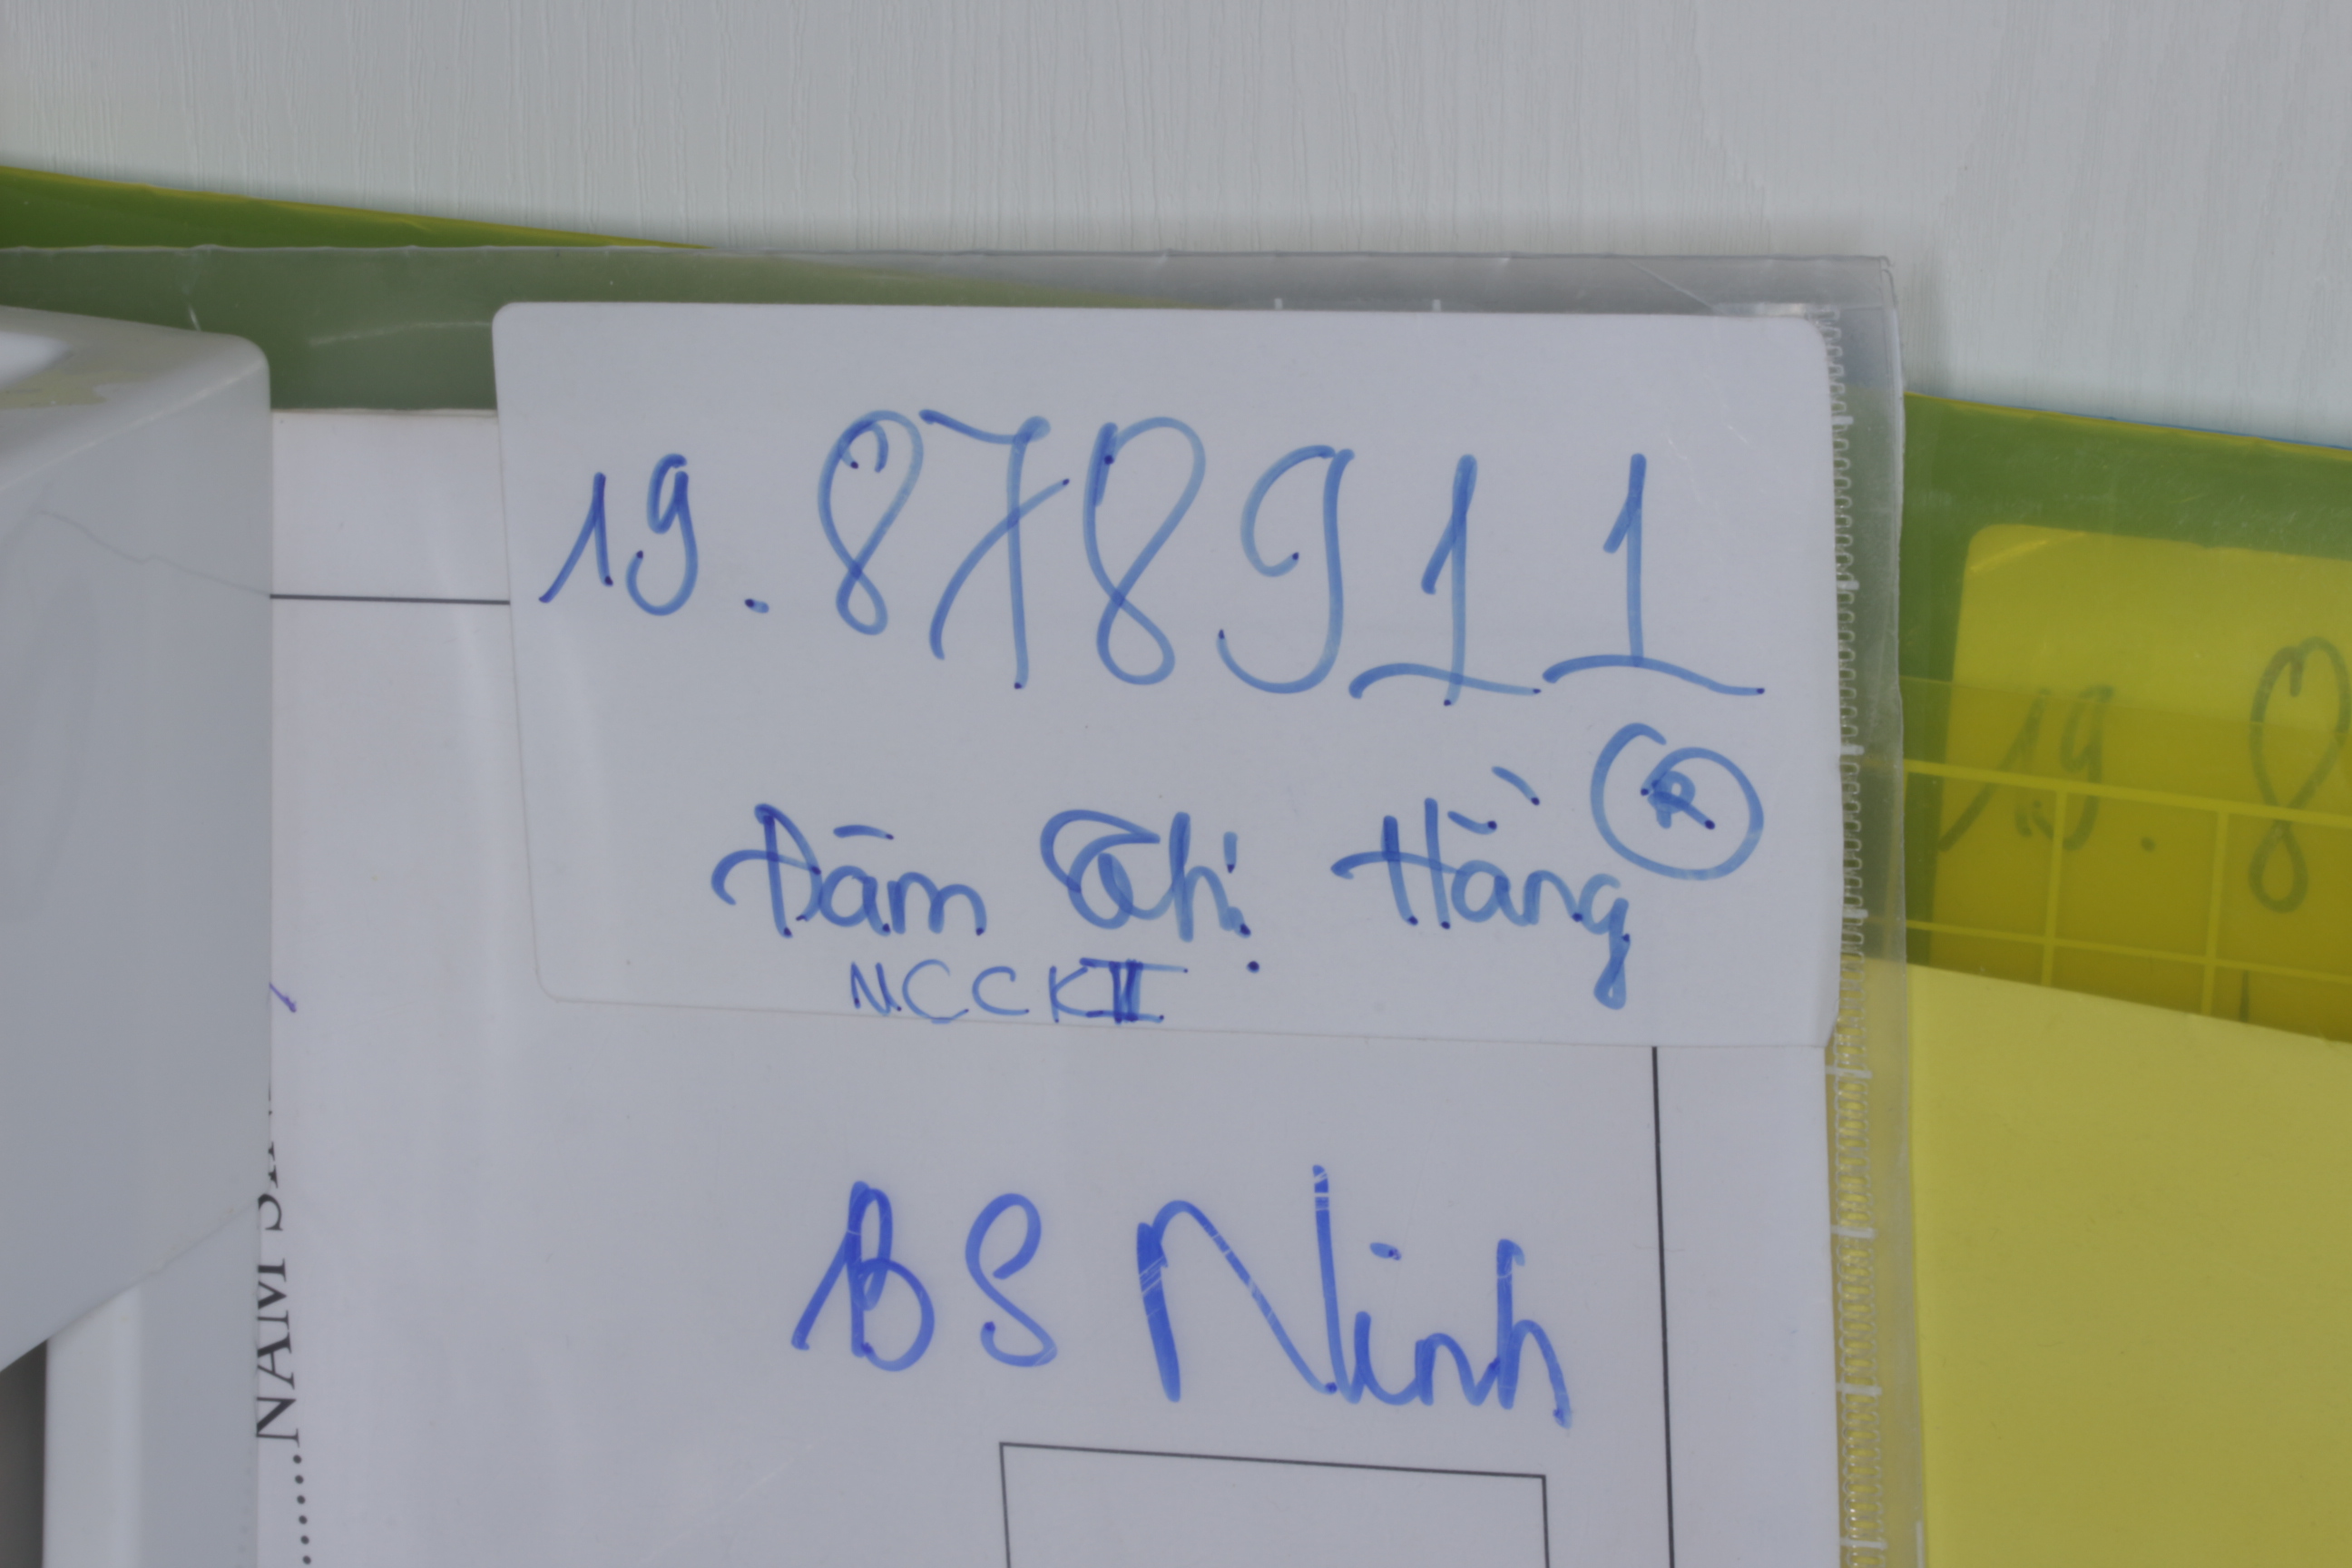 19.878911
Đàm Thị Hằng Ⓡ
NCCKII
BS Ninh
NĂM
19.8